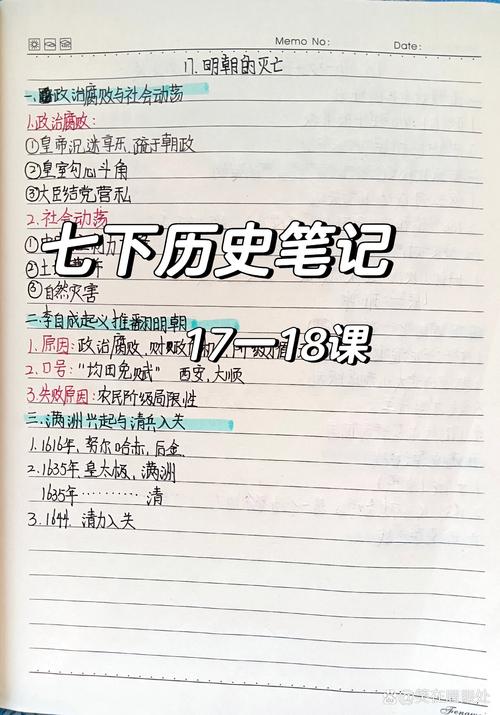 Memo No:
Date:
17.明朝的灭亡
一、政治腐败与社会动荡
1.政治腐败:
①皇帝沉迷享乐,疏于朝政
②皇室勾心斗角
③大臣结党营私
2.社会动荡
①
七下历史笔记
②土
③自然灾害
二、李自成起义推翻明朝
17—18课
1.原因:政治腐败,财政
2.口号:“均田免赋” 西安,大顺
3.失败原因:农民阶级局限性
三、满洲兴起与清兵入关
1.1616年,努尔哈赤,后金
2.1635年皇太极,满洲
1635年………清
3.1644.清入关